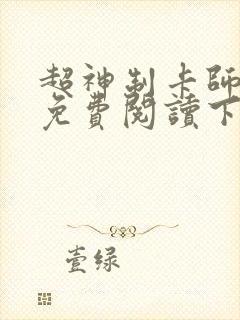 超神制卡師
免費閱讀下
壹绿